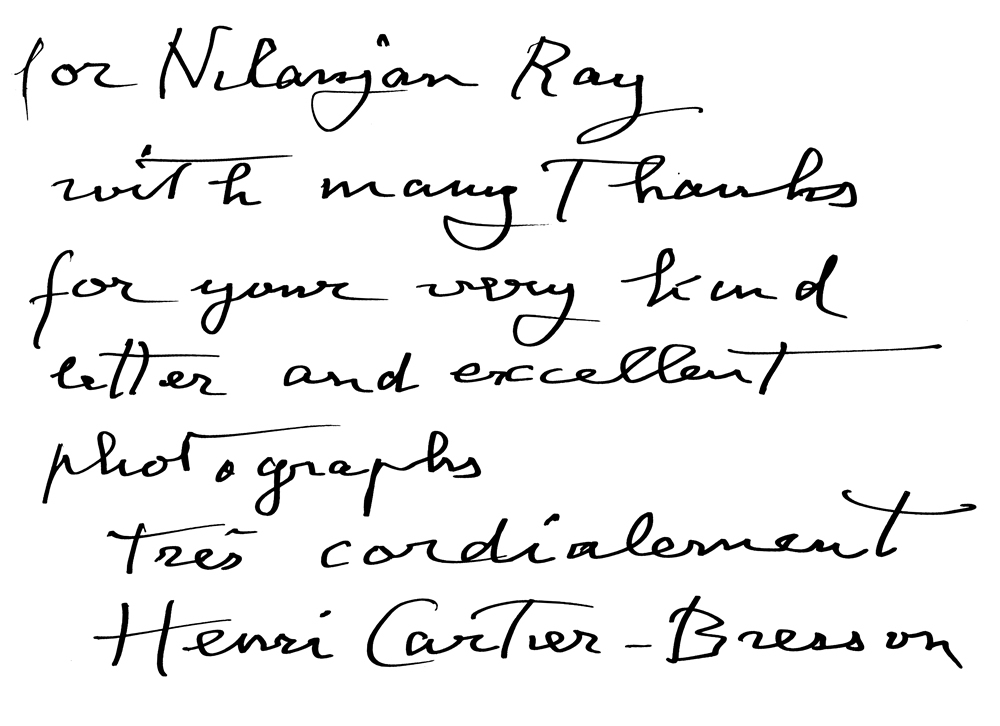 for Nilanjan Ray
with many Thanks
for your very kind
letter and excellent
photographs
très cordialement
Henri Cartier-Bresson